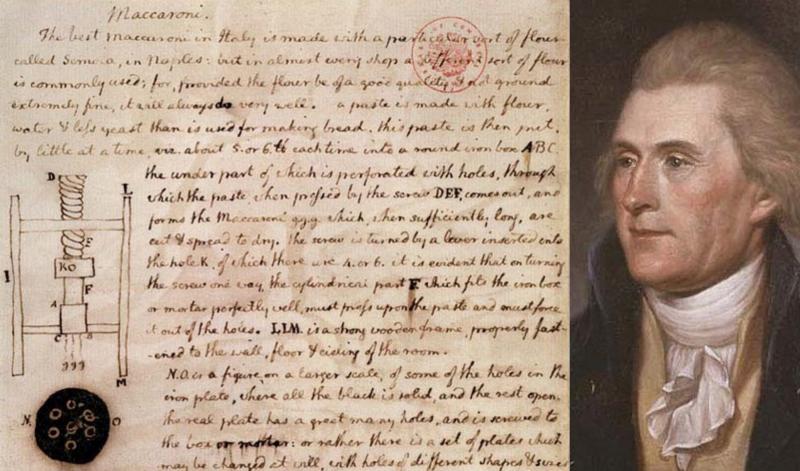 Maccaroni.
The best maccaroni in Italy is made with a particular sort of flour
called Semola, in Naples: but in almost every shop a different sort of flour
is commonly used; for, provided the flour be of a good quality, & not ground
extremely fine, it will always do very well. a paste is made with flour,
water & less yeast than is used for making bread. this paste is then put,
by little at a time, viz. about 5. or 6. lb each time into a round iron box ABC.
the under part of which is perforated with holes, through
which the paste, when pressed by the screw DEF, comes out, and
forms the Maccaroni g.g.g. which, when sufficiently long, are
cut & spread to dry. the screw is turned by a lever inserted into
the hole K. of which there are 4. or 6. it is evident that on turning
the screw one way, the cylindrical part F. which fits the iron box
or mortar perfectly well, must press upon the paste and must force
it out of the holes. LLM. is a strong wooden frame, properly fast-
-ened to the wall, floor & cieling of the room.
N.O. is a figure, on a larger scale, of some of the holes in the
iron plate, where all the black is solid, and the rest open.
the real plate has a great many holes, and is screwed to
the box or mortar: or rather there is a set of plates which
may be changed at will, with holes of different shapes & sizes
D
L
E
I
K
F
A
C
B
M
ggg
N
O